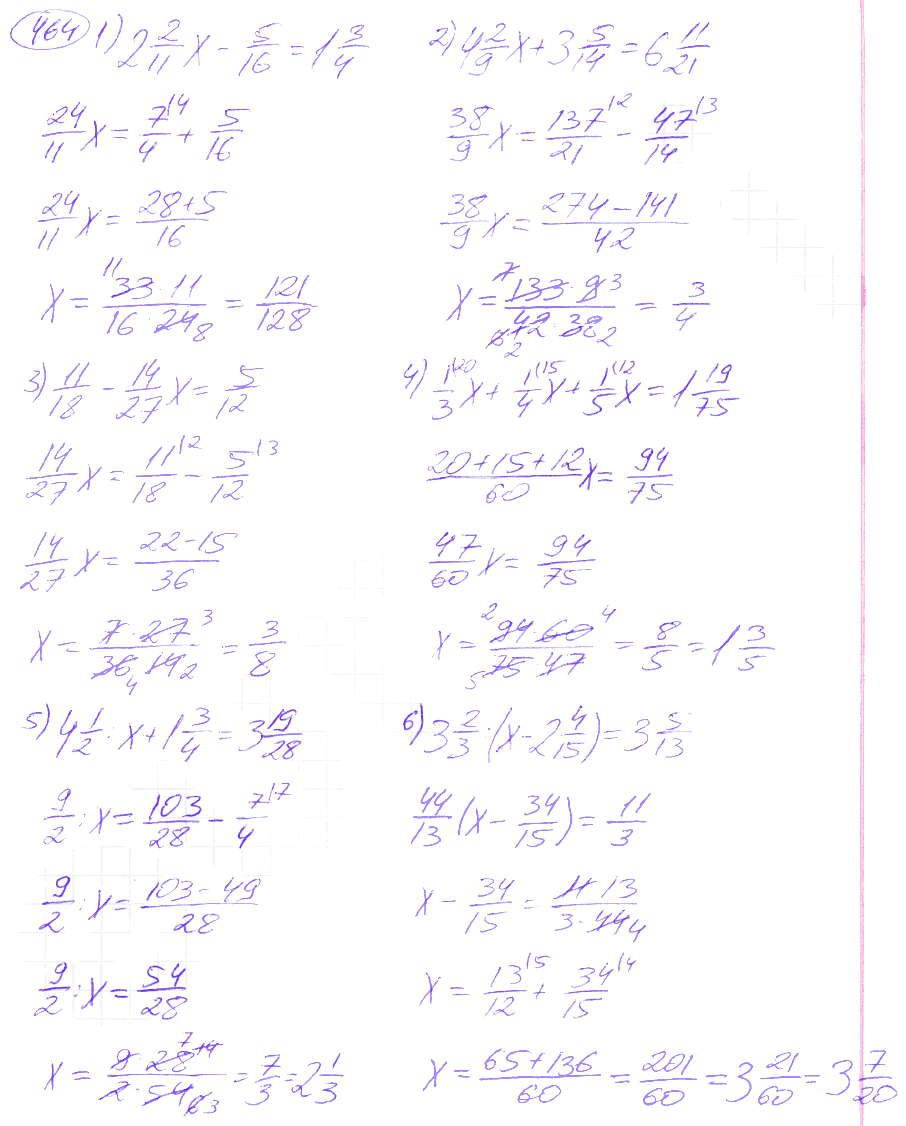 464
1) 2 2/11 x - 5/16 = 1 3/4
24/11 x = 7/4 (4 + 5/16
24/11 x = (28+5)/16
x = (33·11)/(16·24) = 121/128
11 8
2) 4 2/9 x + 3 5/14 = 6 11/21
38/9 x = 137/21 (2 - 47/14 (3
38/9 x = (274-141)/42
x = (133·9)/(42·38) = 3/4
7 3 6 2 2
3) 11/18 - 14/27 x = 5/12
14/27 x = 11/18 (2 - 5/12 (3
14/27 x = (22-15)/36
x = (7·27)/(36·14) = 3/8
3 4 2
4) 1/3 (20 x + 1/4 (15 x + 1/5 (12 x = 1 19/75
(20+15+12)/60 x = 94/75
47/60 x = 94/75
x = (94·60)/(75·47) = 8/5 = 1 3/5
2 4 5
5) 4 1/2 : x + 1 3/4 = 3 19/28
9/2 : x = 103/28 - 7/4 (7
9/2 : x = (103-49)/28
9/2 : x = 54/28
x = (9·28)/(2·54) = 7/3 = 2 1/3
7 14 6 3
6) 3 2/3 : (x - 2 4/15) = 3 5/13
44/13 (x - 34/15) = 11/3
x - 34/15 = (11·13)/(3·44)
4
x = 13/12 (5 + 34/15 (4
x = (65+136)/60 = 201/60 = 3 21/60 = 3 7/20